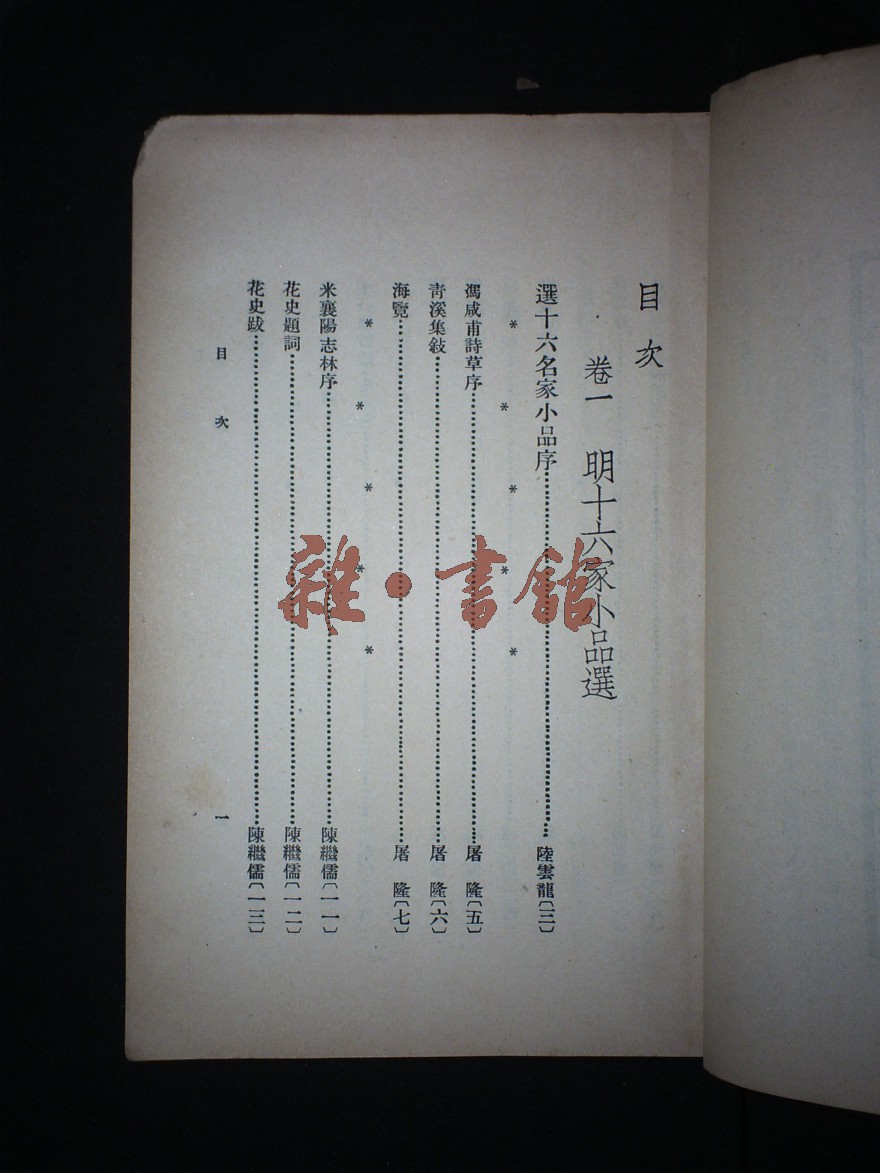 目次
卷一 明十六家小品選
選十六名家小品序…………陸雲龍〔三〕
* * * * *
馮咸甫詩草序…………屠 隆〔五〕
青溪集敍…………屠 隆〔六〕
海覽…………屠 隆〔七〕
* * * * *
米襄陽志林序…………陳繼儒〔一一〕
花史題詞…………陳繼儒〔一二〕
花史跋…………陳繼儒〔一三〕
目次 一
雜·書館